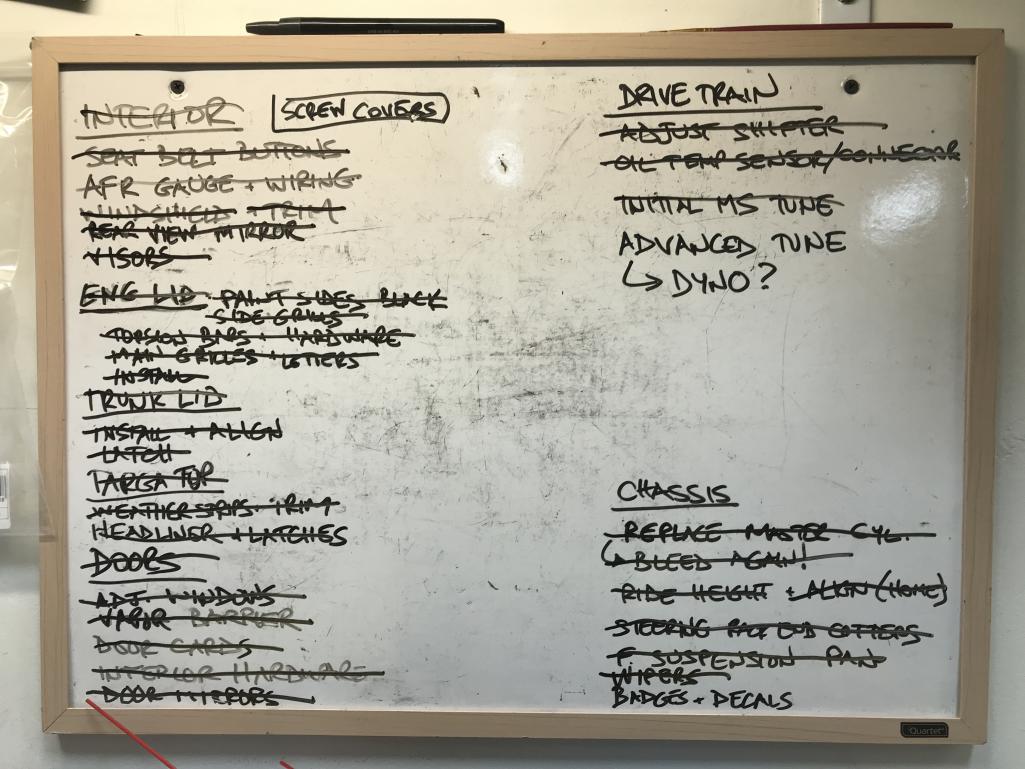 INTERIOR
SCREW COVERS
SEAT BELT BUTTONS
AFR GAUGE + WIRING
WINDSHIELD + TRIM
REAR VIEW MIRROR
VISORS
ENG LID - PAINT SIDES BLACK
SIDE GRILLS
TORSION BARS + HARDWARE
MAIN GRILLES + LETTERS
INSTALL
TRUNK LID
INSTALL + ALIGN
LATCH
TARGA TOP
WEATHERSTRIPS TRIM
HEADLINER + LATCHES
DOORS
ADJ. WINDOWS
VAPOR BARRIER
DOOR CARDS
INTERIOR HARDWARE
DOOR MIRRORS
DRIVE TRAIN
ADJUST SHIFTER
OIL TEMP SENSOR/CONNECTOR
INITIAL MS TUNE
ADVANCED TUNE
↳ DYNO?
CHASSIS
REPLACE MASTER CYL.
↳ BLEED AGAIN!
RIDE HEIGHT + ALIGN (HOME)
STEERING RACK END COTTERS
F SUSPENSION PAN
WIPERS
BADGES + DECALS
Quartet